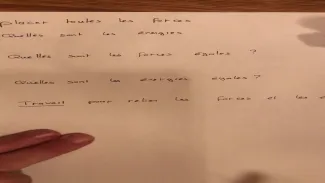 placer toutes les forces
Quelles sont les énergies
Quelles sont les forces égales ?
Quelles sont les énergies égales ?
Travail pour relier les forces et les